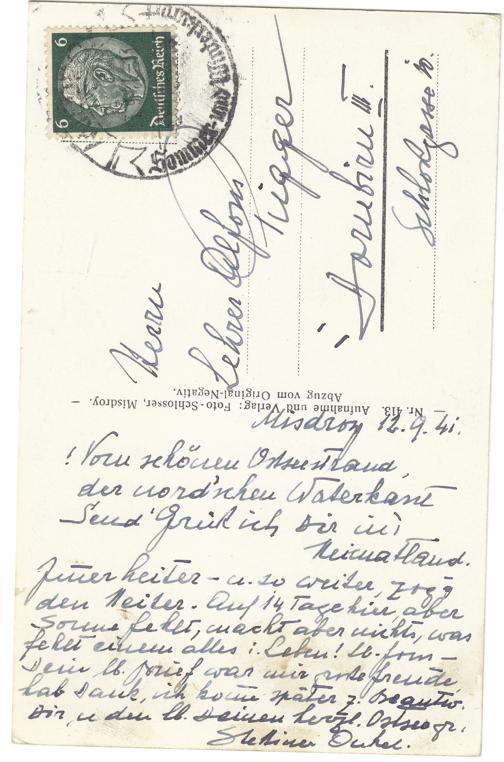 6 Deutsches Reich 6
Herrn
Lehrer Alfons
Dornbirn III.
Schloßgasse 10.
— Nr. 413. Aufnahme und Verlag: Foto-Schlosser, Misdroy. —
Abzug vom Original-Negativ.
Misdroy 12.9.41.
! Vom schönen Ostseestrand,
der nord'schen Waterkant
Send' Gruß ich Dir in's
Heimatland.
heiter - u. so weiter,
den Auf 14 Tage hier aber
Sonne fehlt, macht aber nichts, was
fehlt einem alles i. Leben! lb. fons -
Dein lb. Brief war mir große freude
hab Dank, ich komm später z. Beantw.
Dir, u den lb. Deinen herzl. Ostseegr.
Stettiner Onkel.